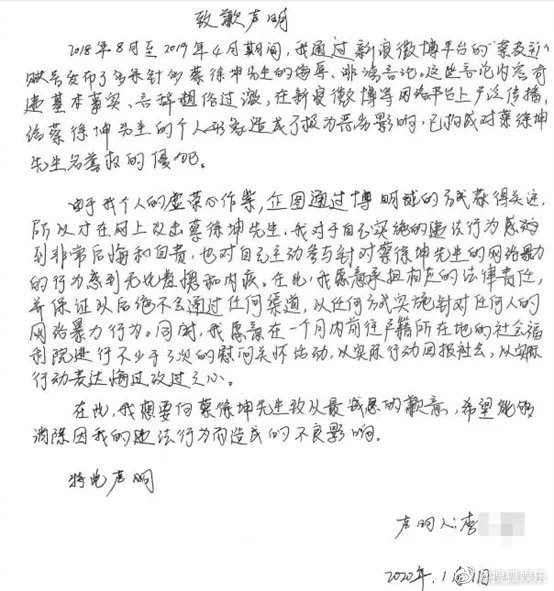 致歉声明
2018年8月至2019年4月期间，我通过新浪微博平台的"蔡友引"
账号发布了多条针对蔡徐坤先生的侮辱、诽谤言论。这些言论内容有
违基本事实、言辞超俗过激，在新浪微博等网络平台上广泛传播，
给蔡徐坤先生的个人形象造成了极为恶劣影响，已构成对蔡徐坤
先生名誉权的侵犯。
由于我个人的虚荣心作祟，企图通过博眼球的方式获得关注，
所以才在网上攻击蔡徐坤先生，我对于自己实施的违法行为感
到非常后悔和自责，也对自己主动参与针对蔡徐坤先生的网络暴力
的行为感到无比羞愧和内疚。在此，我愿意承担相应的法律责任，
并保证以后绝不会通过任何渠道，以任何方式实施针对任何人的
网络暴力行为。同时，我愿意在一个月内前往户籍所在地的社会福
利院进行不少于3次的慰问关怀活动，以实际行动回报社会，以实际
行动表达悔过改过之心。
在此，我想要向蔡徐坤先生致以最诚恳的歉意，希望能够
消除因我的违法行为而造成的不良影响。
特此声明
声明人：李
2020年.1月11日
@搜狐娱乐